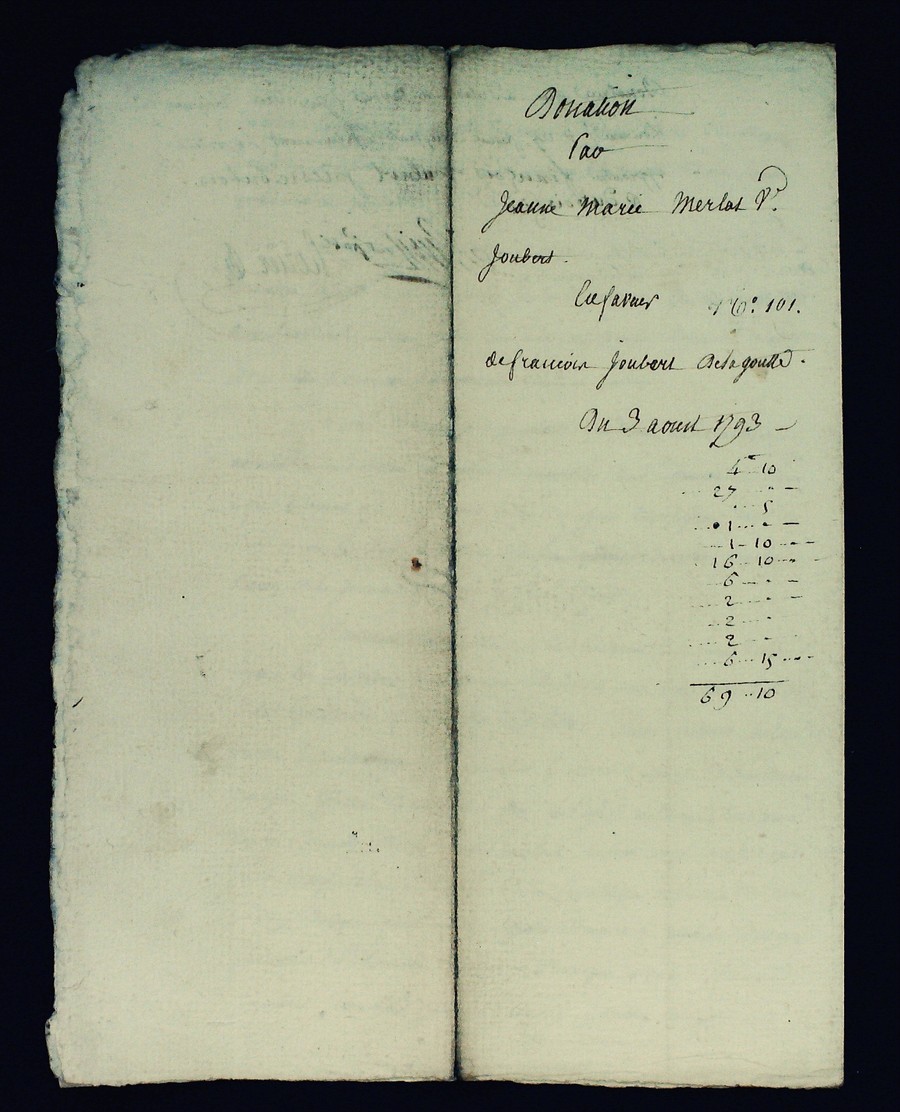 Donation
Par
Jeanne Marie Merlat Ve.
Joubert.
En faveur N°. 101.
de francois Joubert Delagoutte.
Du 3 aoust 1793 —
4 10
27 " —
" 5
1 " —
1 10
16 10
6 " —
2 " —
2 "
2 "
6 15
69 10